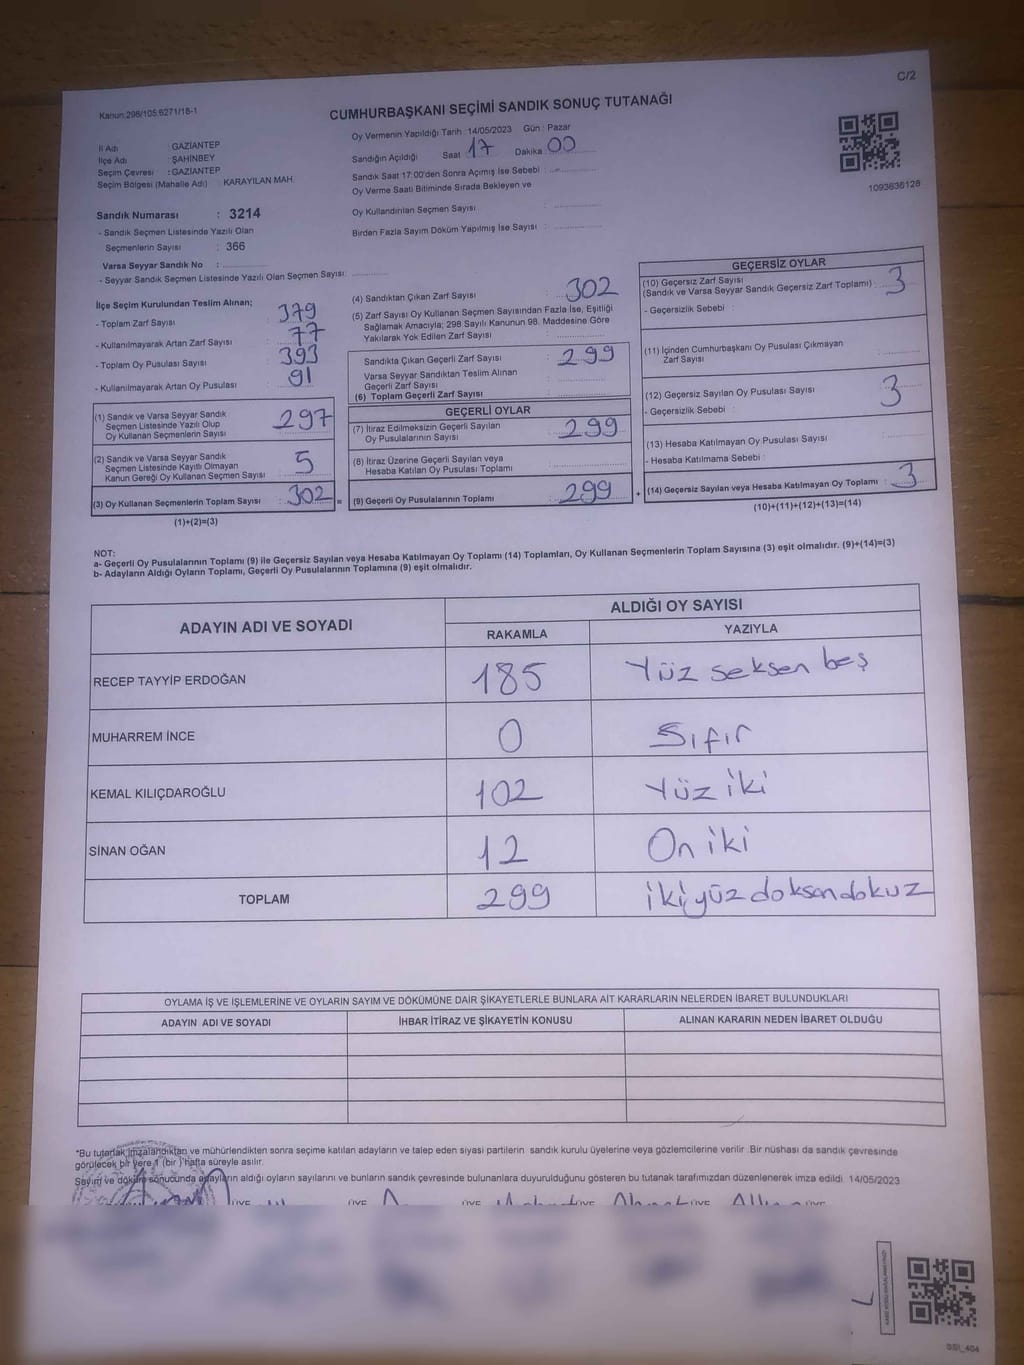 C/2
Kanun:298/105:6271/18-1
CUMHURBAŞKANI SEÇİMİ SANDIK SONUÇ TUTANAĞI
İl Adı : GAZİANTEP
İlçe Adı : ŞAHİNBEY
Seçim Çevresi : GAZİANTEP
Seçim Bölgesi (Mahalle Adı) : KARAYILAN MAH.
Sandık Numarası : 3214
- Sandık Seçmen Listesinde Yazılı Olan
Seçmenlerin Sayısı : 366
Varsa Seyyar Sandık No :
- Seyyar Sandık Seçmen Listesinde Yazılı Olan Seçmen Sayısı:
Oy Vermenin Yapıldığı Tarih : 14/05/2023 Gün : Pazar
Sandığın Açıldığı Saat : 17 Dakika : 00
Sandık Saat 17:00'den Sonra Açımış İse Sebebi :
Oy Verme Saati Bitiminde Sırada Bekleyen ve
Oy Kullandırılan Seçmen Sayısı :
Birden Fazla Sayım Döküm Yapılmış İse Sayısı :
1093636128
İlçe Seçim Kurulundan Teslim Alınan;
- Toplam Zarf Sayısı : 379
- Kullanılmayarak Artan Zarf Sayısı : 77
- Toplam Oy Pusulası Sayısı : 393
- Kullanılmayarak Artan Oy Pusulası : 91
(1) Sandık ve Varsa Seyyar Sandık
Seçmen Listesinde Yazılı Olup
Oy Kullanan Seçmenlerin Sayısı : 297
(2) Sandık ve Varsa Seyyar Sandık
Seçmen Listesinde Kayıtlı Olmayan
Kanun Gereği Oy Kullanan Seçmen Sayısı : 5
(3) Oy Kullanan Seçmenlerin Toplam Sayısı : 302 =
(1)+(2)=(3)
(4) Sandıktan Çıkan Zarf Sayısı : 302
(5) Zarf Sayısı Oy Kullanan Seçmen Sayısından Fazla İse, Eşitliği
Sağlamak Amacıyla; 298 Sayılı Kanunun 98. Maddesine Göre
Yakılarak Yok Edilen Zarf Sayısı :
Sandıkta Çıkan Geçerli Zarf Sayısı : 299
Varsa Seyyar Sandıktan Teslim Alınan
Geçerli Zarf Sayısı :
(6) Toplam Geçerli Zarf Sayısı :
GEÇERLİ OYLAR
(7) İtiraz Edilmeksizin Geçerli Sayılan
Oy Pusulalarının Sayısı : 299
(8) İtiraz Üzerine Geçerli Sayılan veya
Hesaba Katılan Oy Pusulası Toplamı :
(9) Geçerli Oy Pusulalarının Toplamı : 299 +
GEÇERSİZ OYLAR
(10) Geçersiz Zarf Sayısı
(Sandık ve Varsa Seyyar Sandık Geçersiz Zarf Toplamı) : 3
- Geçersizlik Sebebi :
(11) İçinden Cumhurbaşkanı Oy Pusulası Çıkmayan
Zarf Sayısı :
(12) Geçersiz Sayılan Oy Pusulası Sayısı : 3
- Geçersizlik Sebebi :
(13) Hesaba Katılmayan Oy Pusulası Sayısı :
- Hesaba Katılmama Sebebi :
(14) Geçersiz Sayılan veya Hesaba Katılmayan Oy Toplamı : 3
(10)+(11)+(12)+(13)=(14)
NOT:
a- Geçerli Oy Pusulalarının Toplamı (9) ile Geçersiz Sayılan veya Hesaba Katılmayan Oy Toplamı (14) Toplamları, Oy Kullanan Seçmenlerin Toplam Sayısına (3) eşit olmalıdır. (9)+(14)=(3)
b- Adayların Aldığı Oyların Toplamı, Geçerli Oy Pusulalarının Toplamına (9) eşit olmalıdır.
ADAYIN ADI VE SOYADI ALDIĞI OY SAYISI
RAKAMLA YAZIYLA
RECEP TAYYİP ERDOĞAN 185 Yüz seksen beş
MUHARREM İNCE 0 Sıfır
KEMAL KILIÇDAROĞLU 102 Yüz iki
SİNAN OĞAN 12 On iki
TOPLAM 299 ikiyüzdoksandokuz
OYLAMA İŞ VE İŞLEMLERİNE VE OYLARIN SAYIM VE DÖKÜMÜNE DAİR ŞİKAYETLERLE BUNLARA AİT KARARLARIN NELERDEN İBARET BULUNDUKLARI
ADAYIN ADI VE SOYADI İHBAR İTİRAZ VE ŞİKAYETİN KONUSU ALINAN KARARIN NEDEN İBARET OLDUĞU
*Bu tutanak imzalandıktan ve mühürlendikten sonra seçime katılan adayların ve talep eden siyasi partilerin sandık kurulu üyelerine veya gözlemcilerine verilir. Bir nüshası da sandık çevresinde
görülecek bir yere 1 (bir ) hafta süreyle asılır.
Sayım ve döküm sonucunda adayların aldığı oyların sayılarını ve bunların sandık çevresinde bulunanlara duyurulduğunu gösteren bu tutanak tarafımızdan düzenlenerek imza edildi. 14/05/2023
ÜYE ÜYE ÜYE ÜYE ÜYE
SSI_404